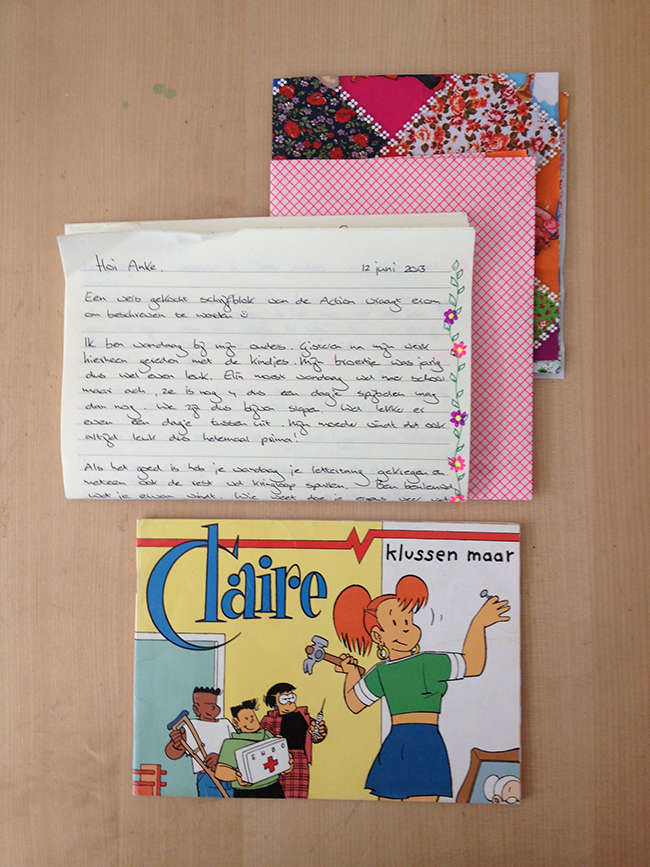 Hoi Anke. 12 juni 2013
Een vers gekocht schrijfblok van de Action vraagt erom
om beschreven te worden
Ik ben vandaag bij mijn ouders. Gisteren na mijn werk
hierheen gereden met de kindjes. Mijn broertje was jarig
dus wel even leuk. Elin moest vandaag wel naar school
maar ach, ze is nog 4 dus een dagje spijbelen mag
dan nog. We zijn dus blijven slapen. Wel lekker er
even een dagje tussen uit. Mijn moeder vindt dat ook
altijd leuk dus helemaal prima!
Als het goed is heb je vandaag je ketting gekregen en
meteen ook de rest vd spullen. Ben benieuwd
wat je ervan vindt. Wie weet doe je eens weer
Claire
klussen maar
EHBO